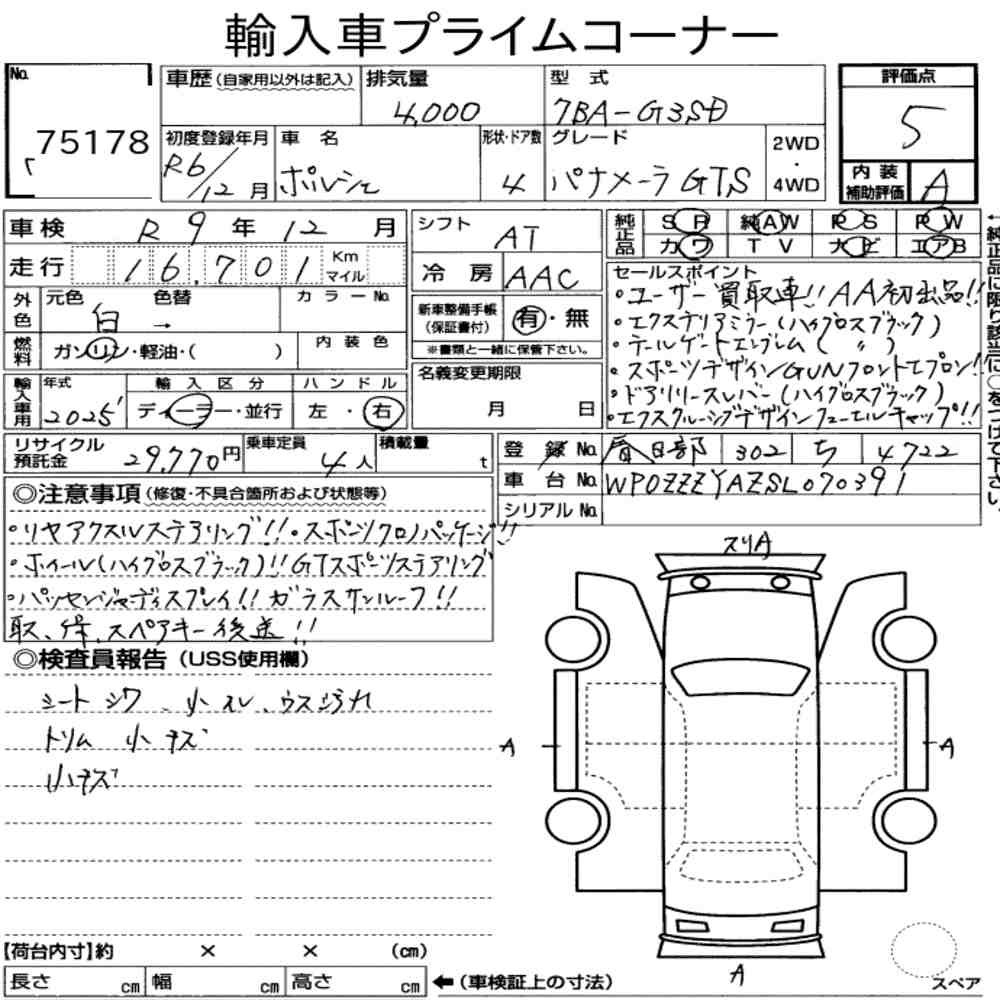 輸入車プライムコーナー
No. 75178
車歴(自家用以外は記入) 排気量 4,000 型式 7BA-G3SD 評価点 5
初度登録年月 R6/12月 車名 ポルシェ 形状・ドア数 4 グレード パナメーラGTS 2WD・4WD 内装補助評価 A
車検 R 9 年 12 月
走行 16,701 Km マイル
外色 元色 白 色替 → カラーNo.
燃料 ガソリン・軽油・( ) 内装色
輸入車用 年式 2025' 輸入区分 ディーラー・並行 ハンドル 左・右
リサイクル預託金 29,770円 乗車定員 4人 積載量 t
シフト AT
冷房 AAC
新車整備手帳(保証書付) 有・無
※書類と一緒に保管下さい。
名義変更期限 月 日
純正品 SR 純AW PS PW
カワ TV ナビ エアB
←純正品に限り該当に○をつけて下さい。
セールスポイント
・ユーザー買取車!! AA初出品!!
・エクステリアミラー(ハイグロスブラック)
・テールゲートエンブレム( 〃 )
・スポーツデザインGUNフロントエプロン!!
・ドアリリースレバー(ハイグロスブラック)
・エクスクルーシブデザインフューエルキャップ!!
登録No. 春日部 302 ち 4722
車台No. WP0ZZZYAZSL070391
シリアルNo.
◎注意事項(修復・不具合箇所および状態等)
・リヤアクスルステアリング!!・スポーツクロノパッケージ!!
・ホイール(ハイグロスブラック)!! GTスポーツステアリング
・パッセンジャーディスプレイ!! ガラスサンルーフ!!
取、保、スペアキー後送!!
◎検査員報告(USS使用欄)
シートシワ、小スレ、ウスヨゴレ
トリム小キズ
小キズ
スリA
A A
A
【荷台内寸】約 × × (cm)
長さ cm 幅 cm 高さ cm ←(車検証上の寸法)
スペア